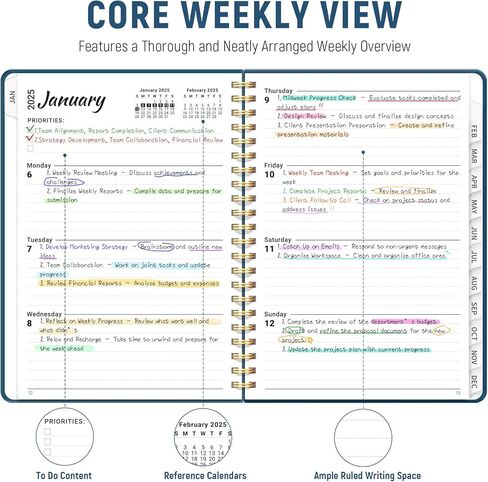 CORE WEEKLY VIEW
Features a Thorough and Neatly Arranged Weekly Overview
JAN
2025 January
January 2025
February 2025
S M T W T F S
S M T W T F S
PRIORITIES:
1.Team Alignment, Report Completion, Client Communication
2.Strategy Development, Team Collaboration, Financial Review
Monday
6
1. Weekly Review Meeting - Discuss achievements and
challenges
2. Finalize Weekly Reports - Compile data and prepare for
submission
Tuesday
7
1. Develop Marketing Strategy - Brainstorm and outline new
ideas
2. Team Collaboration - Work on joint tasks and update
progress
3. Review Financial Reports - Analyze budget and expenses
Wednesday
8
1. Reflect on Weekly Progress - Review what went well and
what didn't
2. Relax and Recharge - Take time to unwind and prepare for
the week ahead
12
Thursday
9
1. Midweek Progress Check - Evaluate tasks completed and
adjust plans !!
2. Design Review - Discuss and finalize design concepts
3. Client Presentation Preparation - Create and refine
presentation materials
Friday
10
1. Weekly Team Meeting - Set goals and priorities for the
week
2. Complete Project Reports - Review and finalize
3. Client Follow Up Call - Check on project status and
address issues !!
Saturday
11
1. Catch Up on Emails - Respond to non urgent messages
2. Organize Workspace - Clean and organize office area
Sunday
12
1. Complete the review of the department's budget
2. Draft and refine the proposal document for the new
project.
3. Update the project plan with current progress.
13
FEB
MAR
APR
MAY
JUN
JUL
AUG
SEP
OCT
NOV
DEC
PRIORITIES:
February 2025
S M T W T F S
To Do Content
Reference Calendars
Ample Ruled Writing Space